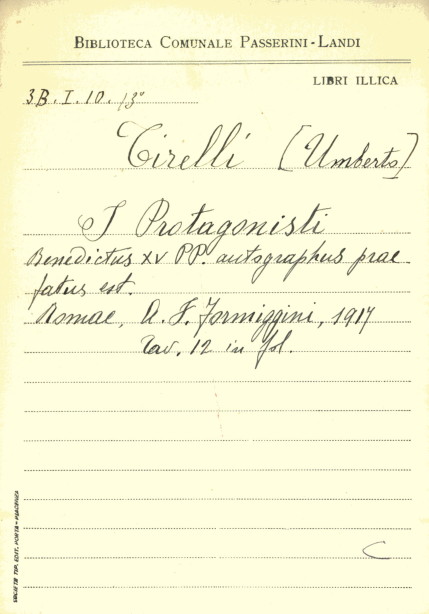 BIBLIOTECA COMUNALE PASSERINI-LANDI
LIBRI ILLICA
3B. I. 10. 13°
Tirelli [Umberto]
I Protagonisti
Benedictus XV PP. autographus prae
fatus est.
Romae, A. F. Formiggini, 1917
Tav. 12 in fol.
TIP. EDIT. PORTA - PIACENZA